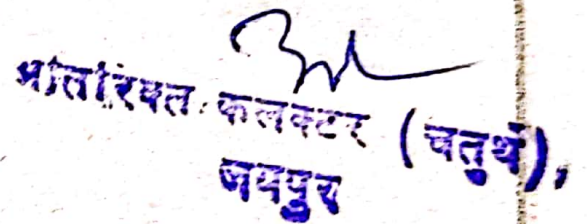 अतिरिक्त कलक्टर (चतुर्थ),
जयपुर